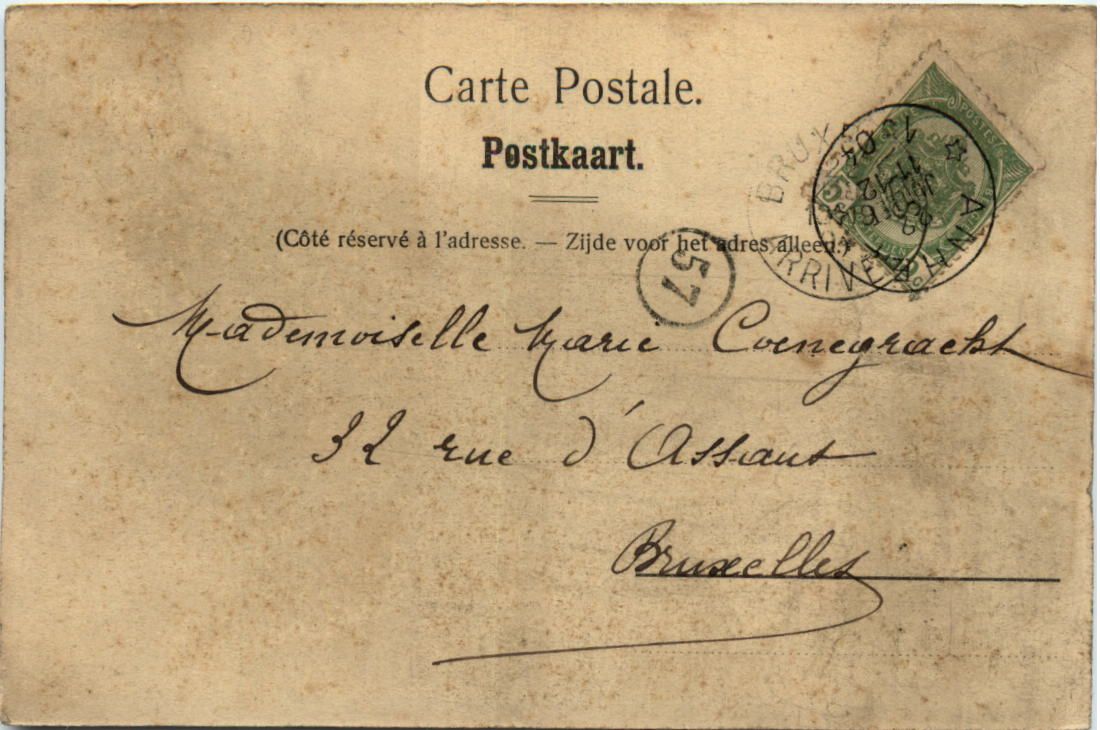 Carte Postale.
Postkaart.
(Côté réservé à l'adresse. — Zijde voor het adres alleen.)
57
BRUX
ARRIVÉE
ANHÉE
Mademoiselle Marie Coenegracht
32 rue d'Assaut
Bruxelles